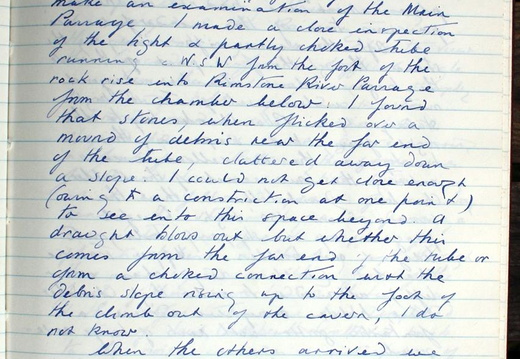 make an examination of the Main
Passage I made a close inspection
of the tight & partly choked tube
running WSW from the foot of the
rock rise into Rimstone River Passage
from the chamber below. I found
that stones when flicked over a
mound of debris near the far end
of the tube, clattered away down
a slope. I could not get close enough
(owing to a constriction at one point)
to see into this space beyond. A
draught blows out but whether this
comes from the far end of the tube or
from a choked connection with the
debris slope rising up to the foot of
the climb out of the cavern, I do
not know.
When the others arrived we